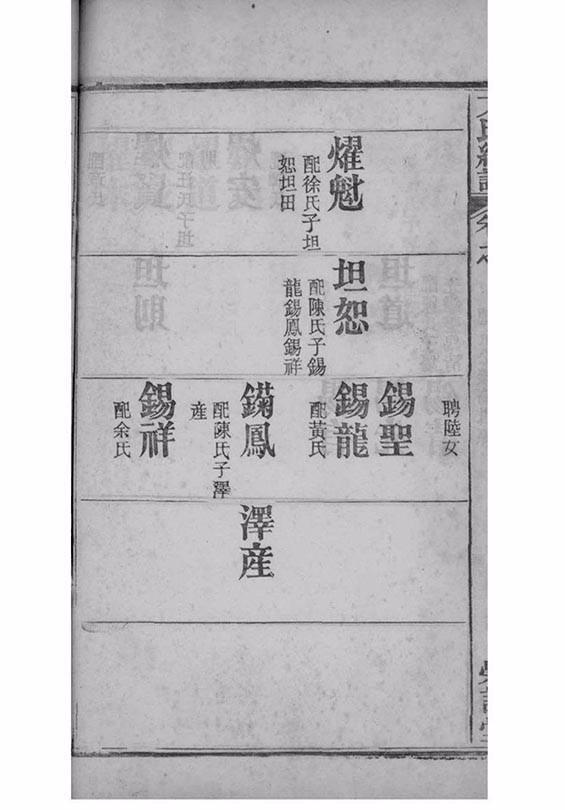 燿魁
配徐氏子坦
恕坦田
坦恕
配陳氏子錫
龍錫鳳錫祥
聘陸女
錫聖
錫龍
配黃氏
錫鳳
配陳氏子澤
産
錫祥
配余氏
澤産